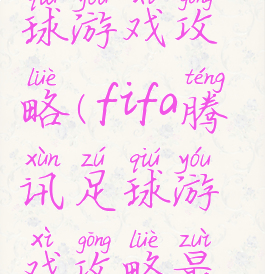 qiú yóu xì gōng
球游戏攻
lüè téng
略(fifa腾
xùn zú qiú yóu
讯足球游
xì gōng lüè zuì
戏攻略最